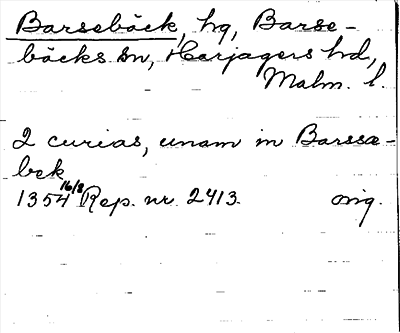 Barsebäck, hg, Barse-
bäcks sn, Harjagers hd,
Malm. l.
2 curias, unam in Barssæ-
bek
1354 16/8 Rep. nr 2413. orig.